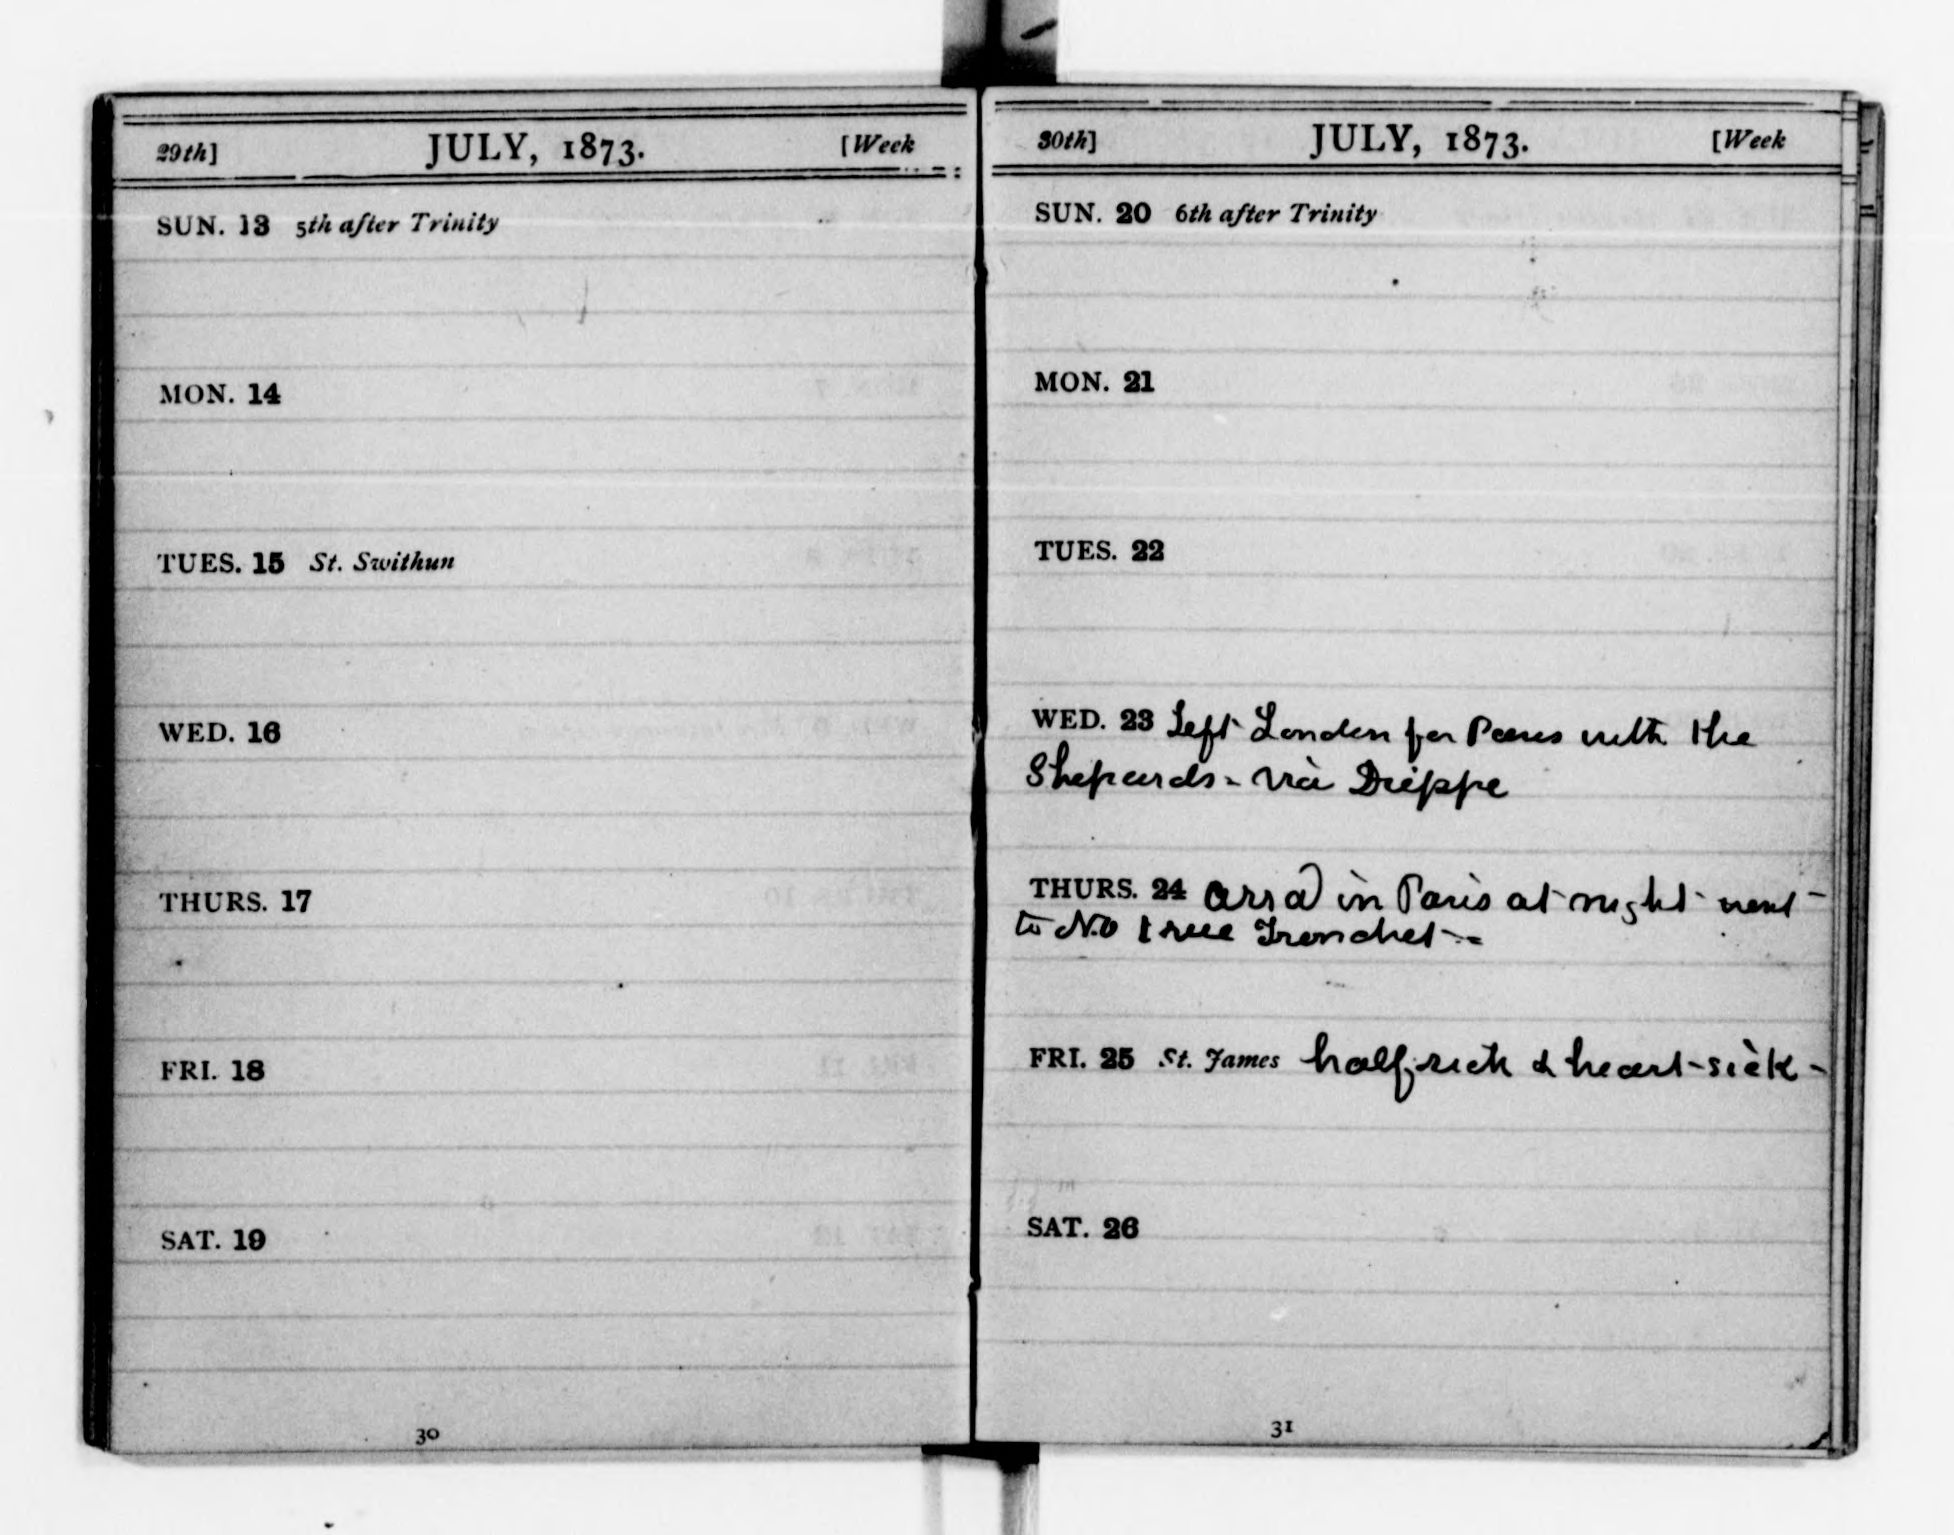 29th] JULY, 1873. [Week
SUN. 13 5th after Trinity
MON. 14
TUES. 15 St. Swithun
WED. 16
THURS. 17
FRI. 18
SAT. 19
30
30th] JULY, 1873. [Week
SUN. 20 6th after Trinity
MON. 21
TUES. 22
WED. 23 Left London for Paris with the
Shepards - via Dieppe
THURS. 24 arrd in Paris at night went
to No 1 rue Tronchet -
FRI. 25 St. James half sick & heart-sick -
SAT. 26
31